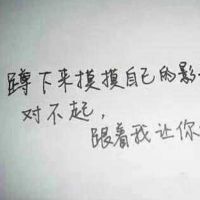 蹲下来摸摸自己的影
对不起，
跟着我让你